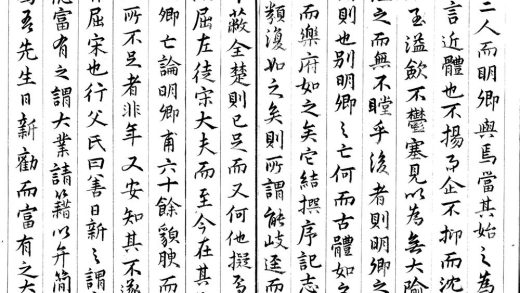 二人而明卿與焉當其始之為
言近體也不揚而企不抑而沈
溢不鬱塞見以為無大隃
之而無不瞠乎後者則明卿之
則也别明卿之亡何而古體如之
而樂府如之矣它結撰序記志
類復如之矣則所謂能岐逕而
蔽全楚則已足而又何他擬焉
屈左徒宋大夫而至今在其
卿亡論明卿甫六十餘貌腴而
所不足者非年又安知其不遂
屈宋也行父氏曰善日新之謂
富有之謂大業請籍以弁簡
吾先生日新勸而富有之大